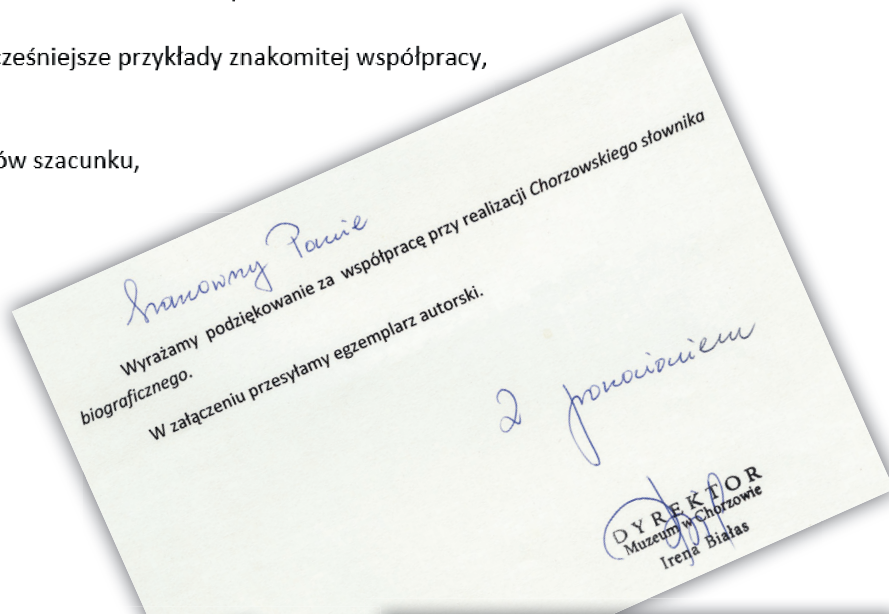 cześniejsze przykłady znakomitej współpracy,
ów szacunku,
Szanowny Panie
Wyrażamy podziękowanie za współpracę przy realizacji Chorzowskiego słownika
biograficznego.
W załączeniu przesyłamy egzemplarz autorski.
Z poważaniem
DYREKTOR
Muzeum w Chorzowie
Irena Białas